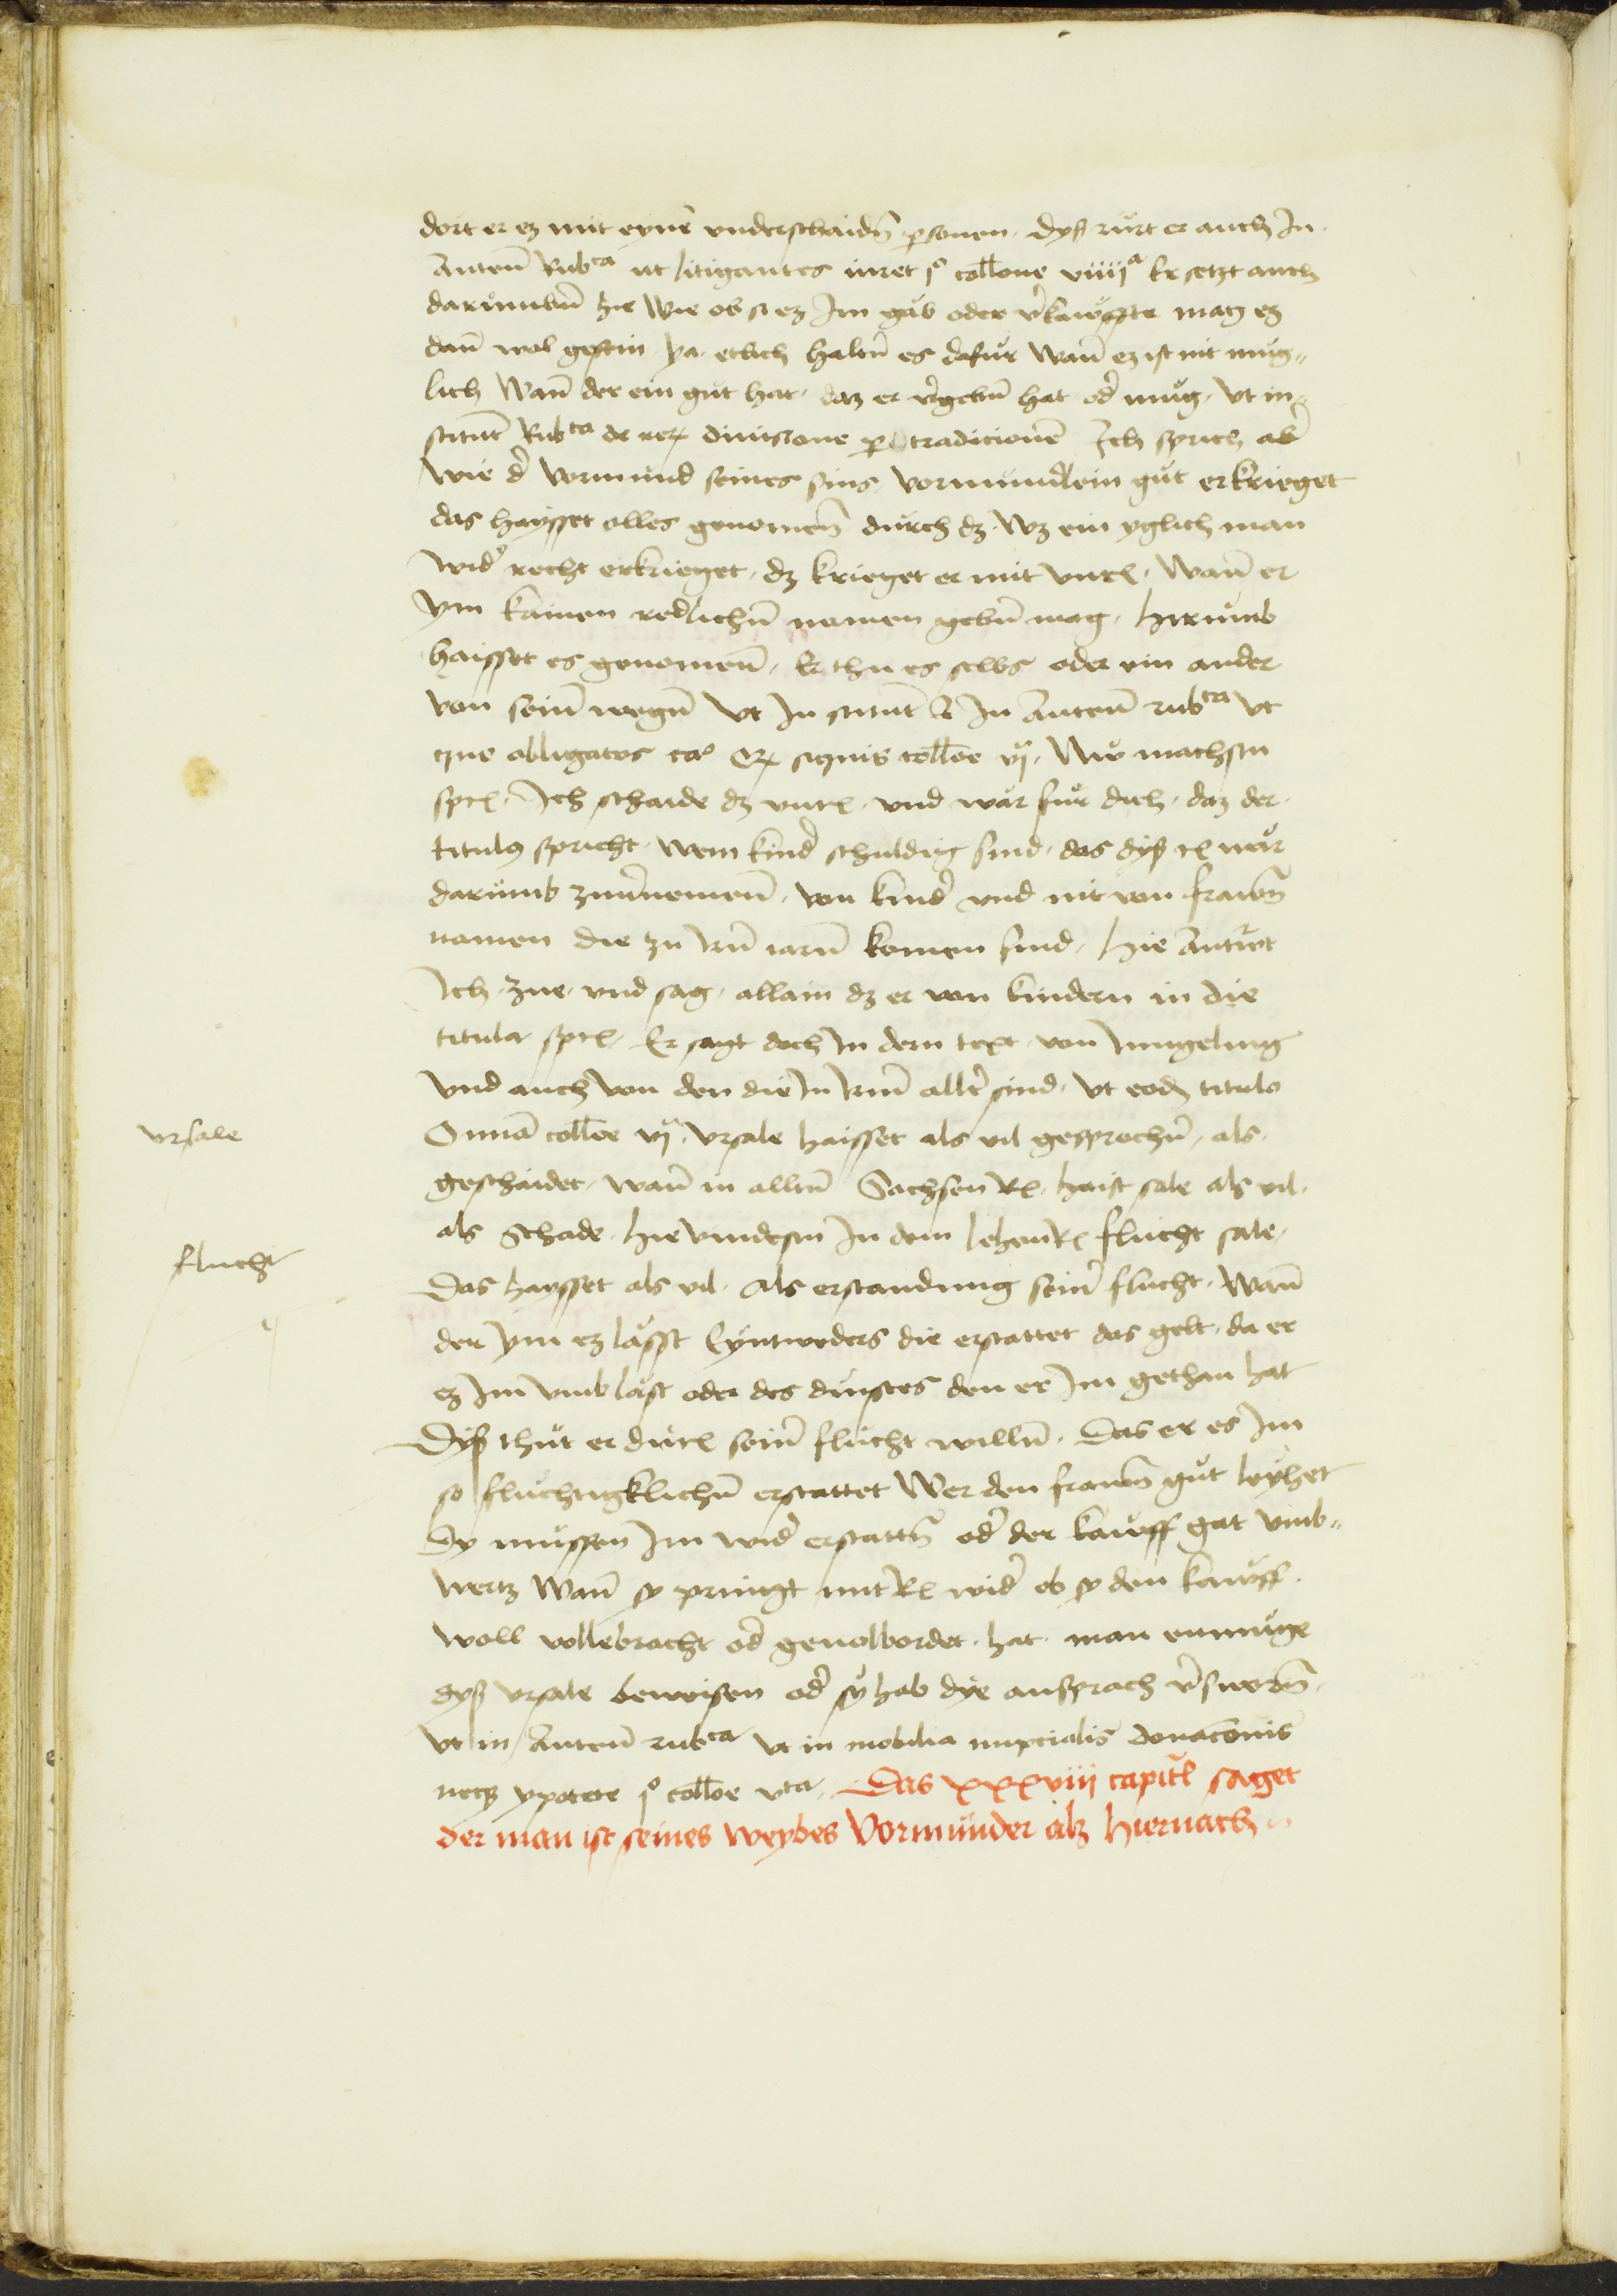 dort er ez mit eyne͞ vnderschaidn̄ ꝑsonen. dyß rürt er auch In
Auten̄ Rubca ut litigantes iuret jo coll̄one viiija Er setzt auch
darumbn̄ hie Wie ob si ez Im gäb oder v͛kawffte mag ez
dan̄ wol gesein ya. etlich haltn̄ es dafur Wan̄ ez ist nit mug-
lich Wan̄ der ein gut hat. daz er v͛gebn̄ hat od͛ mug. vt in-
stitut̄ Rubca de reꝝ diuisione ꝑ tradicione͞ Ich sprich ab͛
wie d͛ Vormund seines sins vormundlein gut erkrieget
das haysset alles genomen̄ durch dz. Wz ein yglich man
wid͛ recht erkrieget. dz krieget er mit vnrꝭ. Wan̄ er
ym kainen redlichn̄ namen gebn̄ mag. Hirumb
haisset es genomen̄. Er thu es selbs oder ein ander
von sein̄ wegn̄ Vt In stitut̄ & In Auten̄ rubca vt
que obligatos cao Qꝝ siquis coll̄oe vj. Nw machstu
sprꝭ. Ich schaide dz vnrꝭ. vnd wär für dich. daz der
titulꝯ spricht. wem kind͛ schuldig sind. das dyß rꝭ wär
darümb zuu͛nemen̄. von kind͛ vnd nit von frawn̄
namen die zu irn̄ iarn̄ komen sind. Hie Antwrt
Ich. Zue. vnd sag. allain dz er von kindern in die
titula sprꝭ. Er sagt doch In dem text von Iungeling
vnd auch von den die In irm̄ allt͛ sind. Vt eodꝫ titulo
Quia͞ coll̄oe vj. Vrsale haisset als vil gesprochn̄. als
geschaidet. wan̄ in alltn̄ Sachsen Rꝭ. haist sale als vil
als Schade. Hie vindestu In dem lehenRꝭ flucht sale.
Das haysset als vil. als erstandung sein͛ flucht. Wan̄
der ym ez lässt Eyntweders die erstattet das gelt. da er
ez Im vmb läst oder des dinstes den er Im gethan hat
Dyß thut er durꝭ sein͛ flucht willn̄. Das er es Im
so fluchtigklichn̄ erstattet Wer den frawn̄ gut leyhet
Dy mussen Im wid͛ erstattn̄ od͛ der kawff gat vmb-
wertz Wan̄ sy pringt mit Rꝭ wid͛ ob sy den kawff
woll vollebracht od͛ geuolbordet. hat. man enmüge
dyß vrsale beweisen od͛ sy hab dye ansprach v͛sworn̄.
Vt in Auten̄ rubca Vt in mobilia nupcialis donac̄onis
neqꝫ ypotece jo coll̄oe vta. Das xxxviij capitl̄ saget
der man ist seines weybes Vormunder alz hiernach
vrsale
flucht